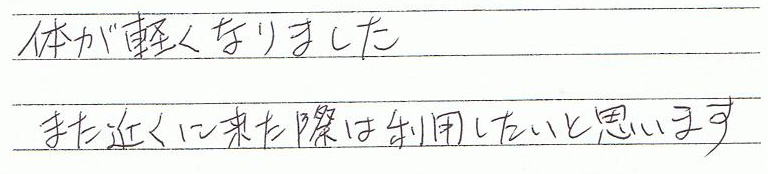 体が軽くなりました
また近くに来た際は利用したいと思います